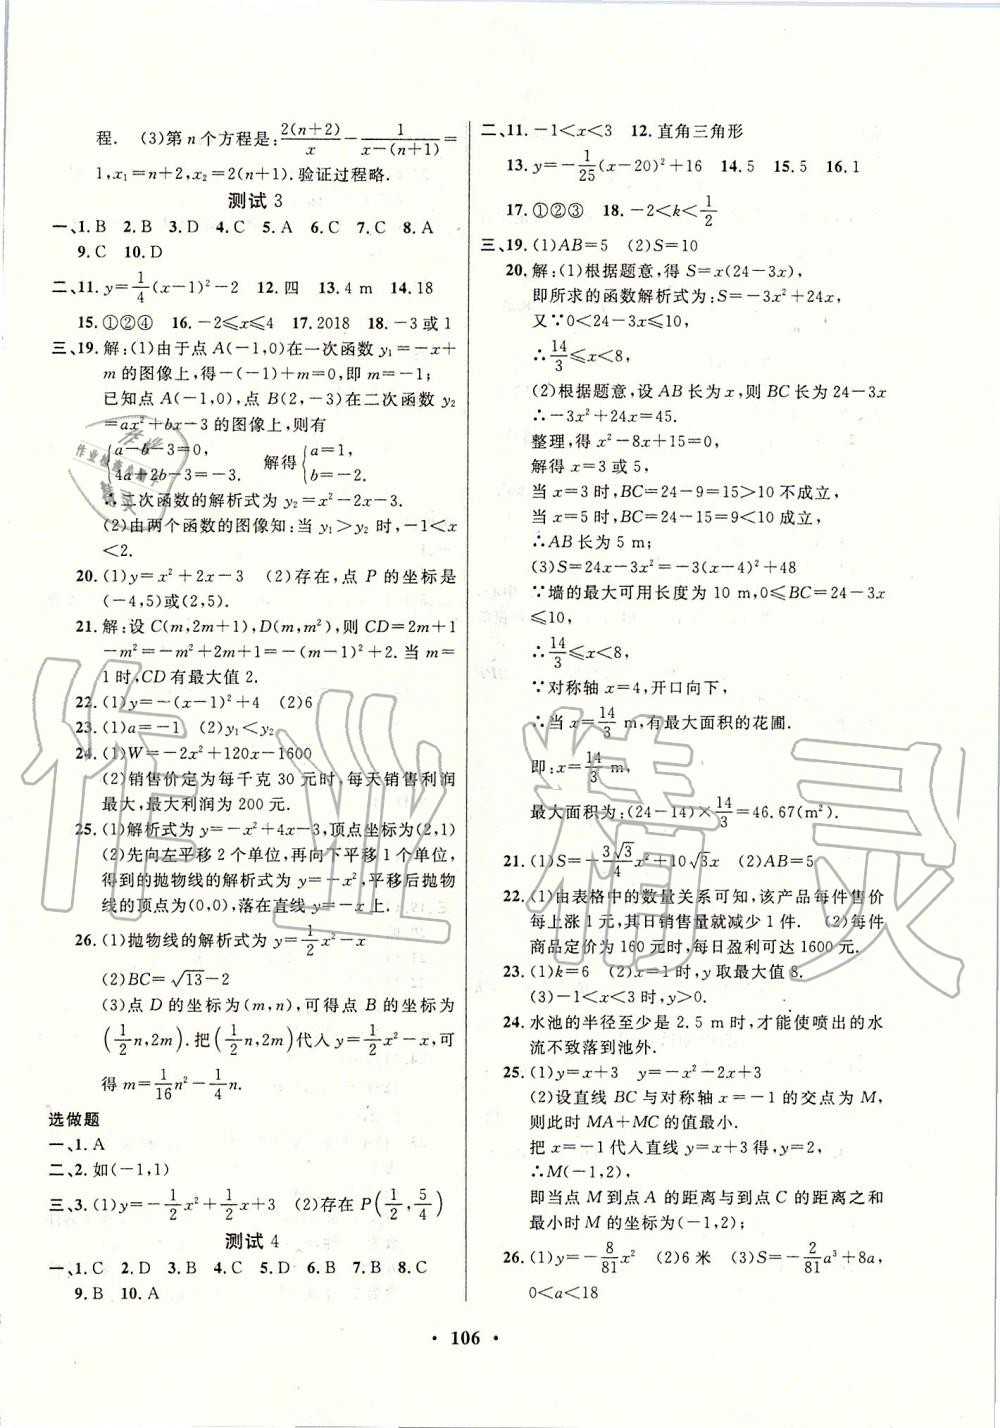 程.　(3)第 n 个方程是:2(n+2)/x－1/(x－(n+1))＝
1,x₁＝n+2,x₂＝2(n+1).验证过程略.
测试 3
一、1. B　2. B　3. D　4. C　5. A　6. C　7. C　8. A
9. C　10. D
二、11. y＝1/4(x－1)²－2　12. 四　13. 4 m　14. 18
15. ①②④　16. －2≤x≤4　17. 2018　18. －3或1
三、19. 解:(1)由于点 A(－1,0)在一次函数 y₁＝－x+
m 的图像上,得－(－1)+m＝0,即 m＝－1;
已知点 A(－1,0),点 B(2,－3)在二次函数 y₂
＝ax²+bx－3 的图像上,则有
{a－b－3＝0,　解得{a＝1,
4a+2b－3＝－3.　b＝－2.
∴二次函数的解析式为 y₂＝x²－2x－3.
(2)由两个函数的图像知:当 y₁＞y₂ 时,－1＜x
＜2.
20. (1)y＝x²+2x－3　(2)存在,点 P 的坐标是
(－4,5)或(2,5).
21. 解:设 C(m,2m+1),D(m,m²),则 CD＝2m+1
－m²＝－m²+2m+1＝－(m－1)²+2.当 m＝
1 时,CD 有最大值 2.
22. (1)y＝－(x－1)²+4　(2)6
23. (1)a＝－1　(2)y₁＜y₂
24. (1)W＝－2x²+120x－1600
(2)销售价定为每千克 30 元时,每天销售利润
最大,最大利润为 200 元.
25. (1)解析式为 y＝－x²+4x－3,顶点坐标为(2,1)
(2)先向左平移 2 个单位,再向下平移 1 个单位,
得到的抛物线的解析式为 y＝－x²,平移后抛物
线的顶点为(0,0),落在直线 y＝－x上.
26. (1)抛物线的解析式为 y＝1/2x²－x
(2)BC＝√13－2
(3)点 D 的坐标为(m,n),可得点 B 的坐标为
(1/2n,2m).把(1/2n,2m)代入 y＝1/2x²－x,可
得 m＝1/16n²－1/4n.
选做题
一、1. A
二、2. 如(－1,1)
三、3. (1)y＝－1/2x²+1/2x+3　(2)存在 P(1/2,5/4)
测试 4
一、1. C　2. D　3. B　4. C　5. D　6. D　7. B　8. C
9. B　10. A
二、11. －1＜x＜3　12. 直角三角形
13. y＝－1/25(x－20)²+16　14. 5　15. 5　16. 1
17. ①②③　18. －2＜k＜1/2
三、19. (1)AB＝5　(2)S＝10
20. 解:(1)根据题意,得 S＝x(24－3x),
即所求的函数解析式为:S＝－3x²+24x,
又∵0＜24－3x≤10,
∴14/3≤x＜8,
(2)根据题意,设 AB 长为 x,则 BC 长为 24－3x
∴－3x²+24x＝45.
整理,得 x²－8x+15＝0,
解得 x＝3 或 5,
当 x＝3 时,BC＝24－9＝15＞10 不成立,
当 x＝5 时,BC＝24－15＝9＜10 成立,
∴AB 长为 5 m;
(3)S＝24x－3x²＝－3(x－4)²+48
∵墙的最大可用长度为 10 m,0≤BC＝24－3x
≤10,
∴14/3≤x＜8,
∵对称轴 x＝4,开口向下,
∴当 x＝14/3 m,有最大面积的花圃.
即:x＝14/3 m,
最大面积为:(24－14)×14/3＝46.67(m²).
21. (1)S＝－3√3/4x²+10√3x　(2)AB＝5
22. (1)由表格中的数量关系可知,该产品每件售价
每上涨 1 元,其日销售量就减少 1 件.　(2)每件
商品定价为 160 元时,每日盈利可达 1600 元.
23. (1)k＝6　(2)x＝1时,y 取最大值 8.
(3)－1＜x＜3 时,y＞0.
24. 水池的半径至少是 2.5 m 时,才能使喷出的水
流不致落到池外.
25. (1)y＝x+3　y＝－x²－2x+3
(2)设直线 BC 与对称轴 x＝－1 的交点为 M,
则此时 MA+MC 的值最小.
把 x＝－1代入直线 y＝x+3得,y＝2,
∴M(－1,2),
即当点 M 到点 A 的距离与到点 C 的距离之和
最小时 M 的坐标为(－1,2);
26. (1)y＝－8/81x²　(2)6 米　(3)S＝－2/81a³+8a,
0＜a＜18
• 106 •
作业精灵